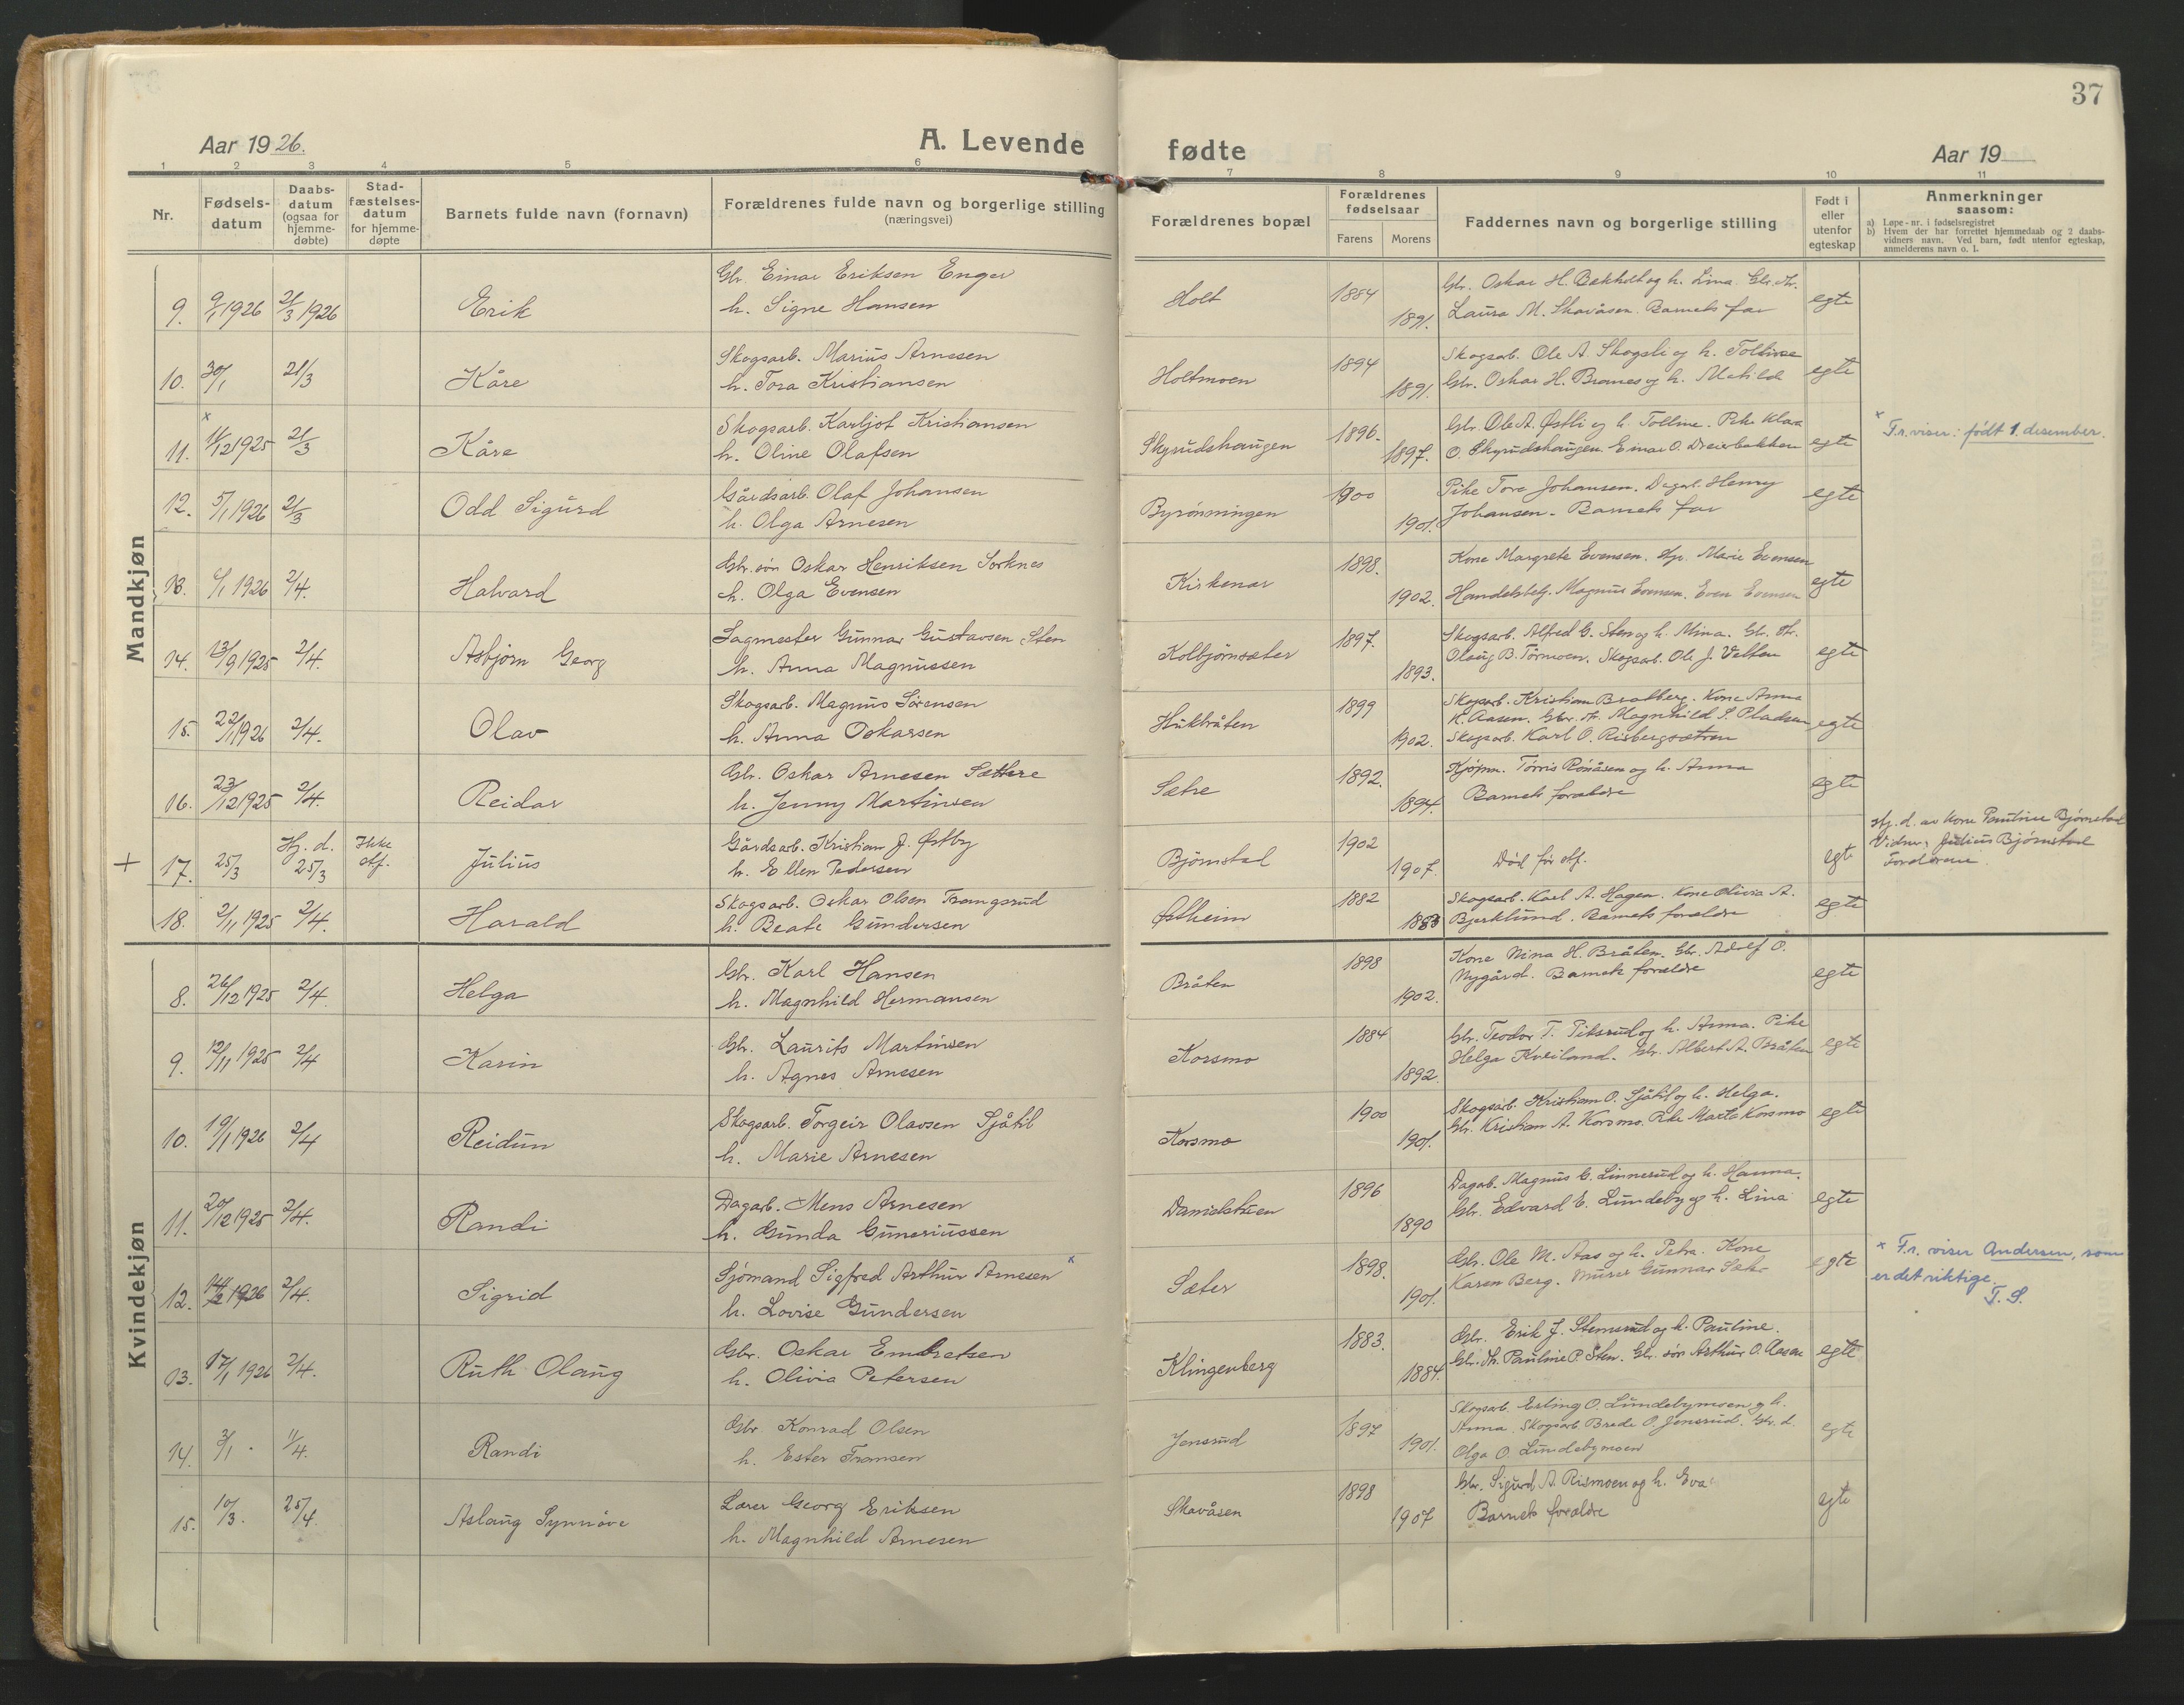 37
Aar 1926.
A. Levende fødte
Aar 19
1 2 3 4 5 6 7 8 9 10 11
Nr.
Fødsels-
datum
Daabs-
datum
(ogsaa for
hjemme-
døbte)
Stad-
fæstelses-
datum
for hjemme-
døpte
Barnets fulde navn (fornavn)
Forældrenes fulde navn og borgerlige stilling
(næringsvei)
Forældrenes bopæl
Forældrenes
fødselsaar
Farens Morens
Faddernes navn og borgerlige stilling
Født i
eller
utenfor
egteskap
Anmerkninger
saasom:
a) Løpe-nr. i fødselsregistret
b) Hvem der har forrettet hjemmedaab og 2 daabs-
vidners navn. Ved barn, født utenfor egteskap,
anmelderens navn o. l.
Mandkjøn
9. 9/1 1926 21/3 1926 Erik
Gbr. Einar Eriksen Enger
h. Signe Hansen
Holt 1884 1891.
Gbr. Oskar H. Bekholt og h. Lina. Gbr. dtr.
Laura M. Skavåsen. Barnets far
egte
10. 30/1 21/3 Kåre
Skogsarb. Marius Arnesen
h. Tora Kristiansen
Holtmoen 1894 1891.
Skogsarb. Ole A. Skogsli og h. Tolline
Gbr. Oskar H. Branes og h. Matilde
egte
x
11. 11/12 1925 21/3 Kåre
Skogsarb. Karljot Kristiansen
h. Oline Olafsen
Skyrudshaugen 1896. 1897.
Gbr. Ole A. Østli og h. Tolline. Pike Klara
O. Skyrudshaugen. Einar O. Dreierbakken
egte
x F.r. viser: født 1. desember.
12. 5/1 1926 21/3 Odd Sigurd
Gårdsarb. Olaf Johansen
h. Olga Arnesen
Byrønningen 1900 1901.
Pike Tora Johansen. Dagarb. Henry
Johansen - Barnets far
egte
13. 6/1 1926 2/4. Halvard
Gbr. søn Oskar Henriksen Sorknes
h. Olga Evensen
Kirkenær 1898. 1902.
Kone Margrete Evensen. Marie Evensen
Handelsbetj. Magnus Evensen. Even Evensen
egte
14. 13/9 1925 2/4. Asbjørn Georg
Sagmester Gunnar Gustavsen Sten
h. Anna Magnussen
Kolbjørnsæter 1897. 1893.
Skogsarb. Alfred G. Sten og h. Mina. Gbr. dtr.
Olaug B. Tørmoen. Skogsarb. Ole J. Velten
egte
15. 22/1 1926 2/4. Olav
Skogsarb. Magnus Sørensen
h. Anna Oskarsen
Hukbråten 1899 1902.
Skogsarb. Kristian Bratberg. Kone Anna
K. Aasen. Gbr. dtr. Magnhild S. Pladsen
Skogsarb. Karl O. Risbergsætren
egte
16. 23/12 1925 2/4. Reidar
Gbr. Oskar Arnesen Sættere
h. Jenny Martinsen
Sætre 1892. 1894.
Kjøpm. Torris Rønåsen og h. Anna
Barnets forældre
egte
+ 17. 25/3 Hj. d. 25/3 Ikke stf. Julius
Gårdsarb. Kristian J. Østby
h. Ellen Pedersen
Bjørnstad 1902 1907.
Død før stf.
egt
Hj. d. av kone Pauline Bjørnstad
Vidner, Julius Bjørnstad
Forældrene
18. 2/11 1925 2/4. Harald
Skogsarb. Oskar Olsen Trangsrud
h. Beate Gundersen
Østheim 1882 1883
Skogsarb. Karl A. Hagen. Kone Olivia A.
Bjerklund. Barnets forældre
egte
Kvindekjøn
8. 26/12 1925 2/4 Helga
Gbr. Karl Hansen
h. Magnhild Hermansen
Bråten 1898 1902.
Kone Nina H. Bråten. Gbr. Adolf O.
Nygård. Barnets forældre
egte
9. 12/11 1925 2/4 Karin
Gbr. Laurits Martinsen
h. Agnes Arnesen
Korsmo 1884 1892.
Gbr. Teodor T. Pitsrud og h. Anna. Pike
Helga Kveiland. Gbr. Albert A. Bråten
egte
10. 19/1 1926 2/4 Reidun
Skogsarb. Torgeir Olavsen Sjåtil
h. Marie Arnesen
Korsmo 1900 1901.
Skogsarb. Kristian O. Sjåtil og h. Helga.
Gbr. Kristian A. Korsmo. Pike Marta Korsmo
egte
11. 20/12 1925 2/4. Randi
Dagarb. Mens Arnesen
h. Gunda Guneriussen
Danielstuen 1896 1890
Dagarb. Magnus G. Linnerud og h. Hanna.
Gbr. Edvard E. Lundeby og h. Lina
egte
12. 14/2 1926 2/4. Sigrid
Sjømand Sigfred Arthur Arnesen x
h. Lovise Gundersen
Sæter 1898. 1901.
Gbr. Ole M. Aas og h. Petra. Kone
Karen Berg. Murer Gunnar Sæter
egte
x F.r. viser Andersen, som
er det riktige.
T. S.
13. 17/1 1926 2/4. Ruth Olaug
Gbr. Oskar Embretsen
h. Olivia Petersen
Klingenberg 1883. 1884.
Gbr. Erik J. Stemsrud og h. Pauline.
Gbr. dtr. Pauline P. Sten. Gbr. søn Arthur O. Aasen
egte
14. 3/1 . 1/4. Randi
Gbr Konrad Olsen
h. Ester Fransen
Jensrud 1897 1901.
Skogsarb. Erling O. Lundebymoen og h.
Anna. Skogsarb Brede O. Jensrud. Gbr. d.
Olga O. Lundebymoen
egte
15. 10/3. 25/4. Aslaug Synnøve
Lærer Georg Eriksen
h. Magnhild Arnesen
Skavåsen 1898 1907
Gbr. Sigurd A. Rismoen og h. Eva
Barnets forældre
egte